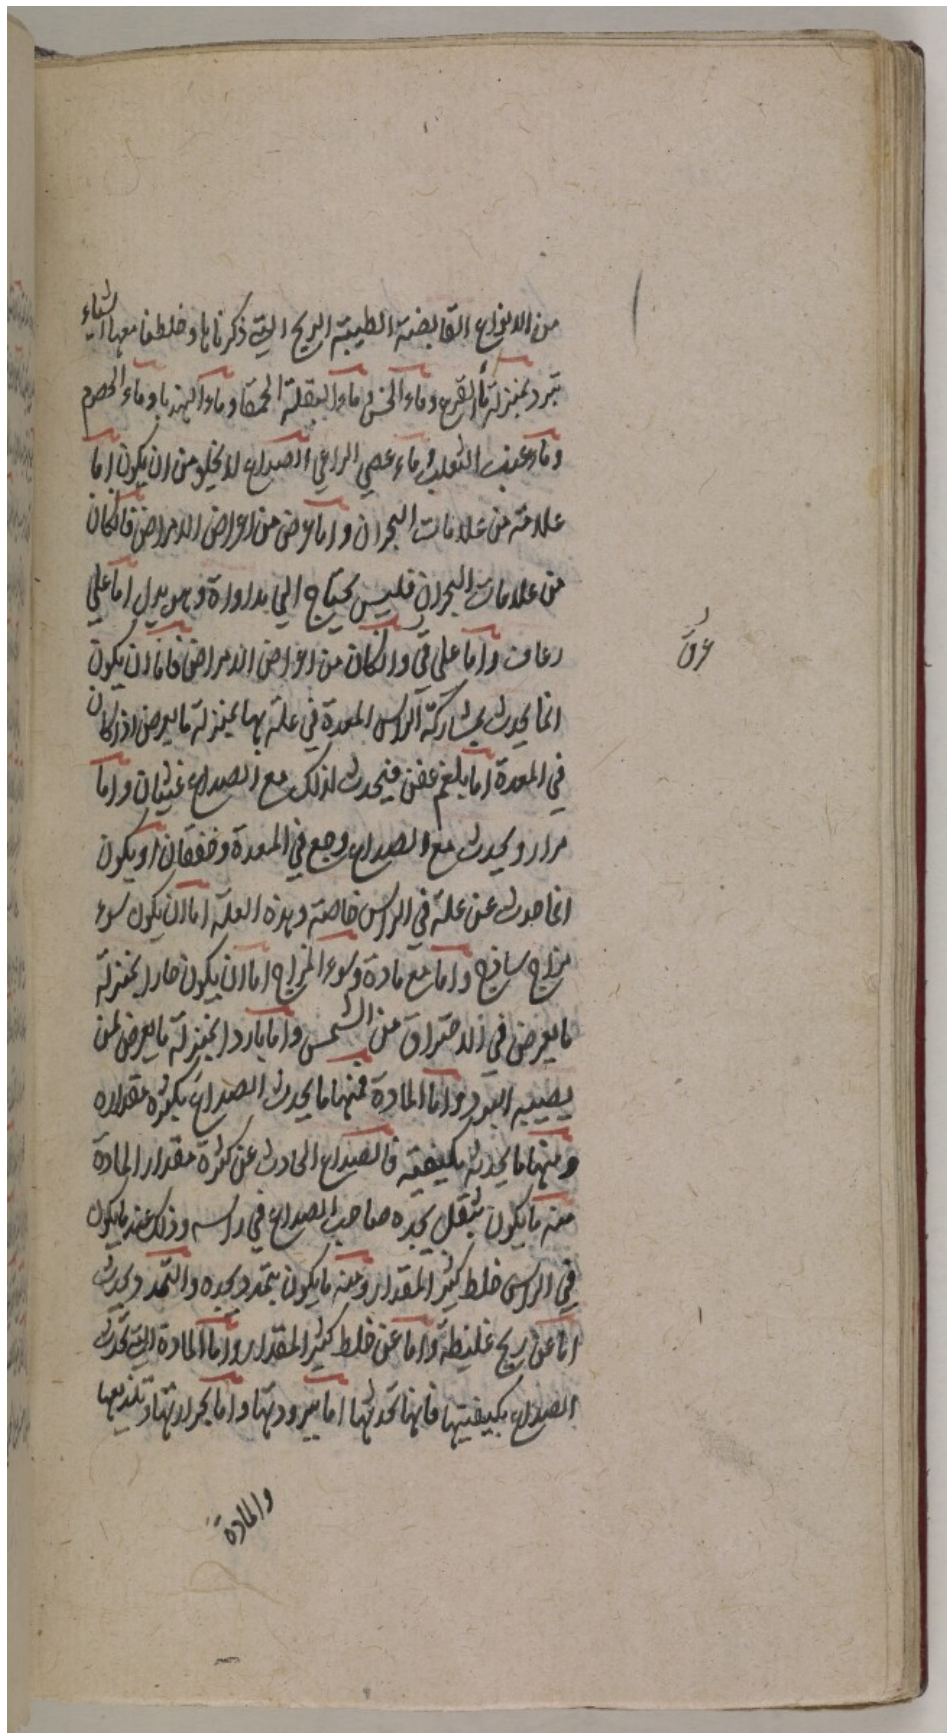 من الانواع القابضة الطيبة الريح التي ذكرناها وخلطنا معها اشياء
تبرد بمنزلة ماء القرع وماء الخس وماء البقلة الحمقا وماء الهندبا وماء الحصرم
وماء عنب الثعلب وماء عصي الراعي الصداع لا يخلو من ان يكون اما
علامة من علامات البحران واما عرض من اعراض الامراض فان كان
من علامات البحران فليس يحتاج الي مداواة وهو يدل اما علي
رعاف واما علي قي وان كان من اعراض الامراض فاما ان يكون
انما يحدث بمشاركة الراس المعدة في علة بها بمنزلة ما يعرض اذا كان
في المعدة اما بلغم عفن فيحدث لذلك مع الصداع غثيان واما
مرار ويحدث مع الصداع وجع في المعدة وخفقان او يكون
انما حدث عن علة في الراس خاصة وهذه العلة اما ان يكون سوء
مزاج ساذج واما مع مادة وسوء المزاج اما ان يكون حارا بمنزلة
ما يعرض في الاحتراق من الشمس واما باردا بمنزلة ما يعرض لمن
يصيبه البرد واما المادة فمنها ما يحدث الصداع بكثرة مقداره
ومنها ما يحدثه بكيفيته فالصداع الحادث عن كثرة مقدار المادة
منه ما يكون بثقل يجده صاحب الصداع في راسه وذلك عند ما يكون
في الراس خلط كثير المقدار ومنه ما يكون بتمدد يجده والتمدد يحدث
اما عن ريح غليظة واما عن خلط كثير المقدار واما المادة التي تحدث
الصداع بكيفيتها فانها تحدثها اما ببرودتها واما بحرارتها وتلذيعها
والمادة